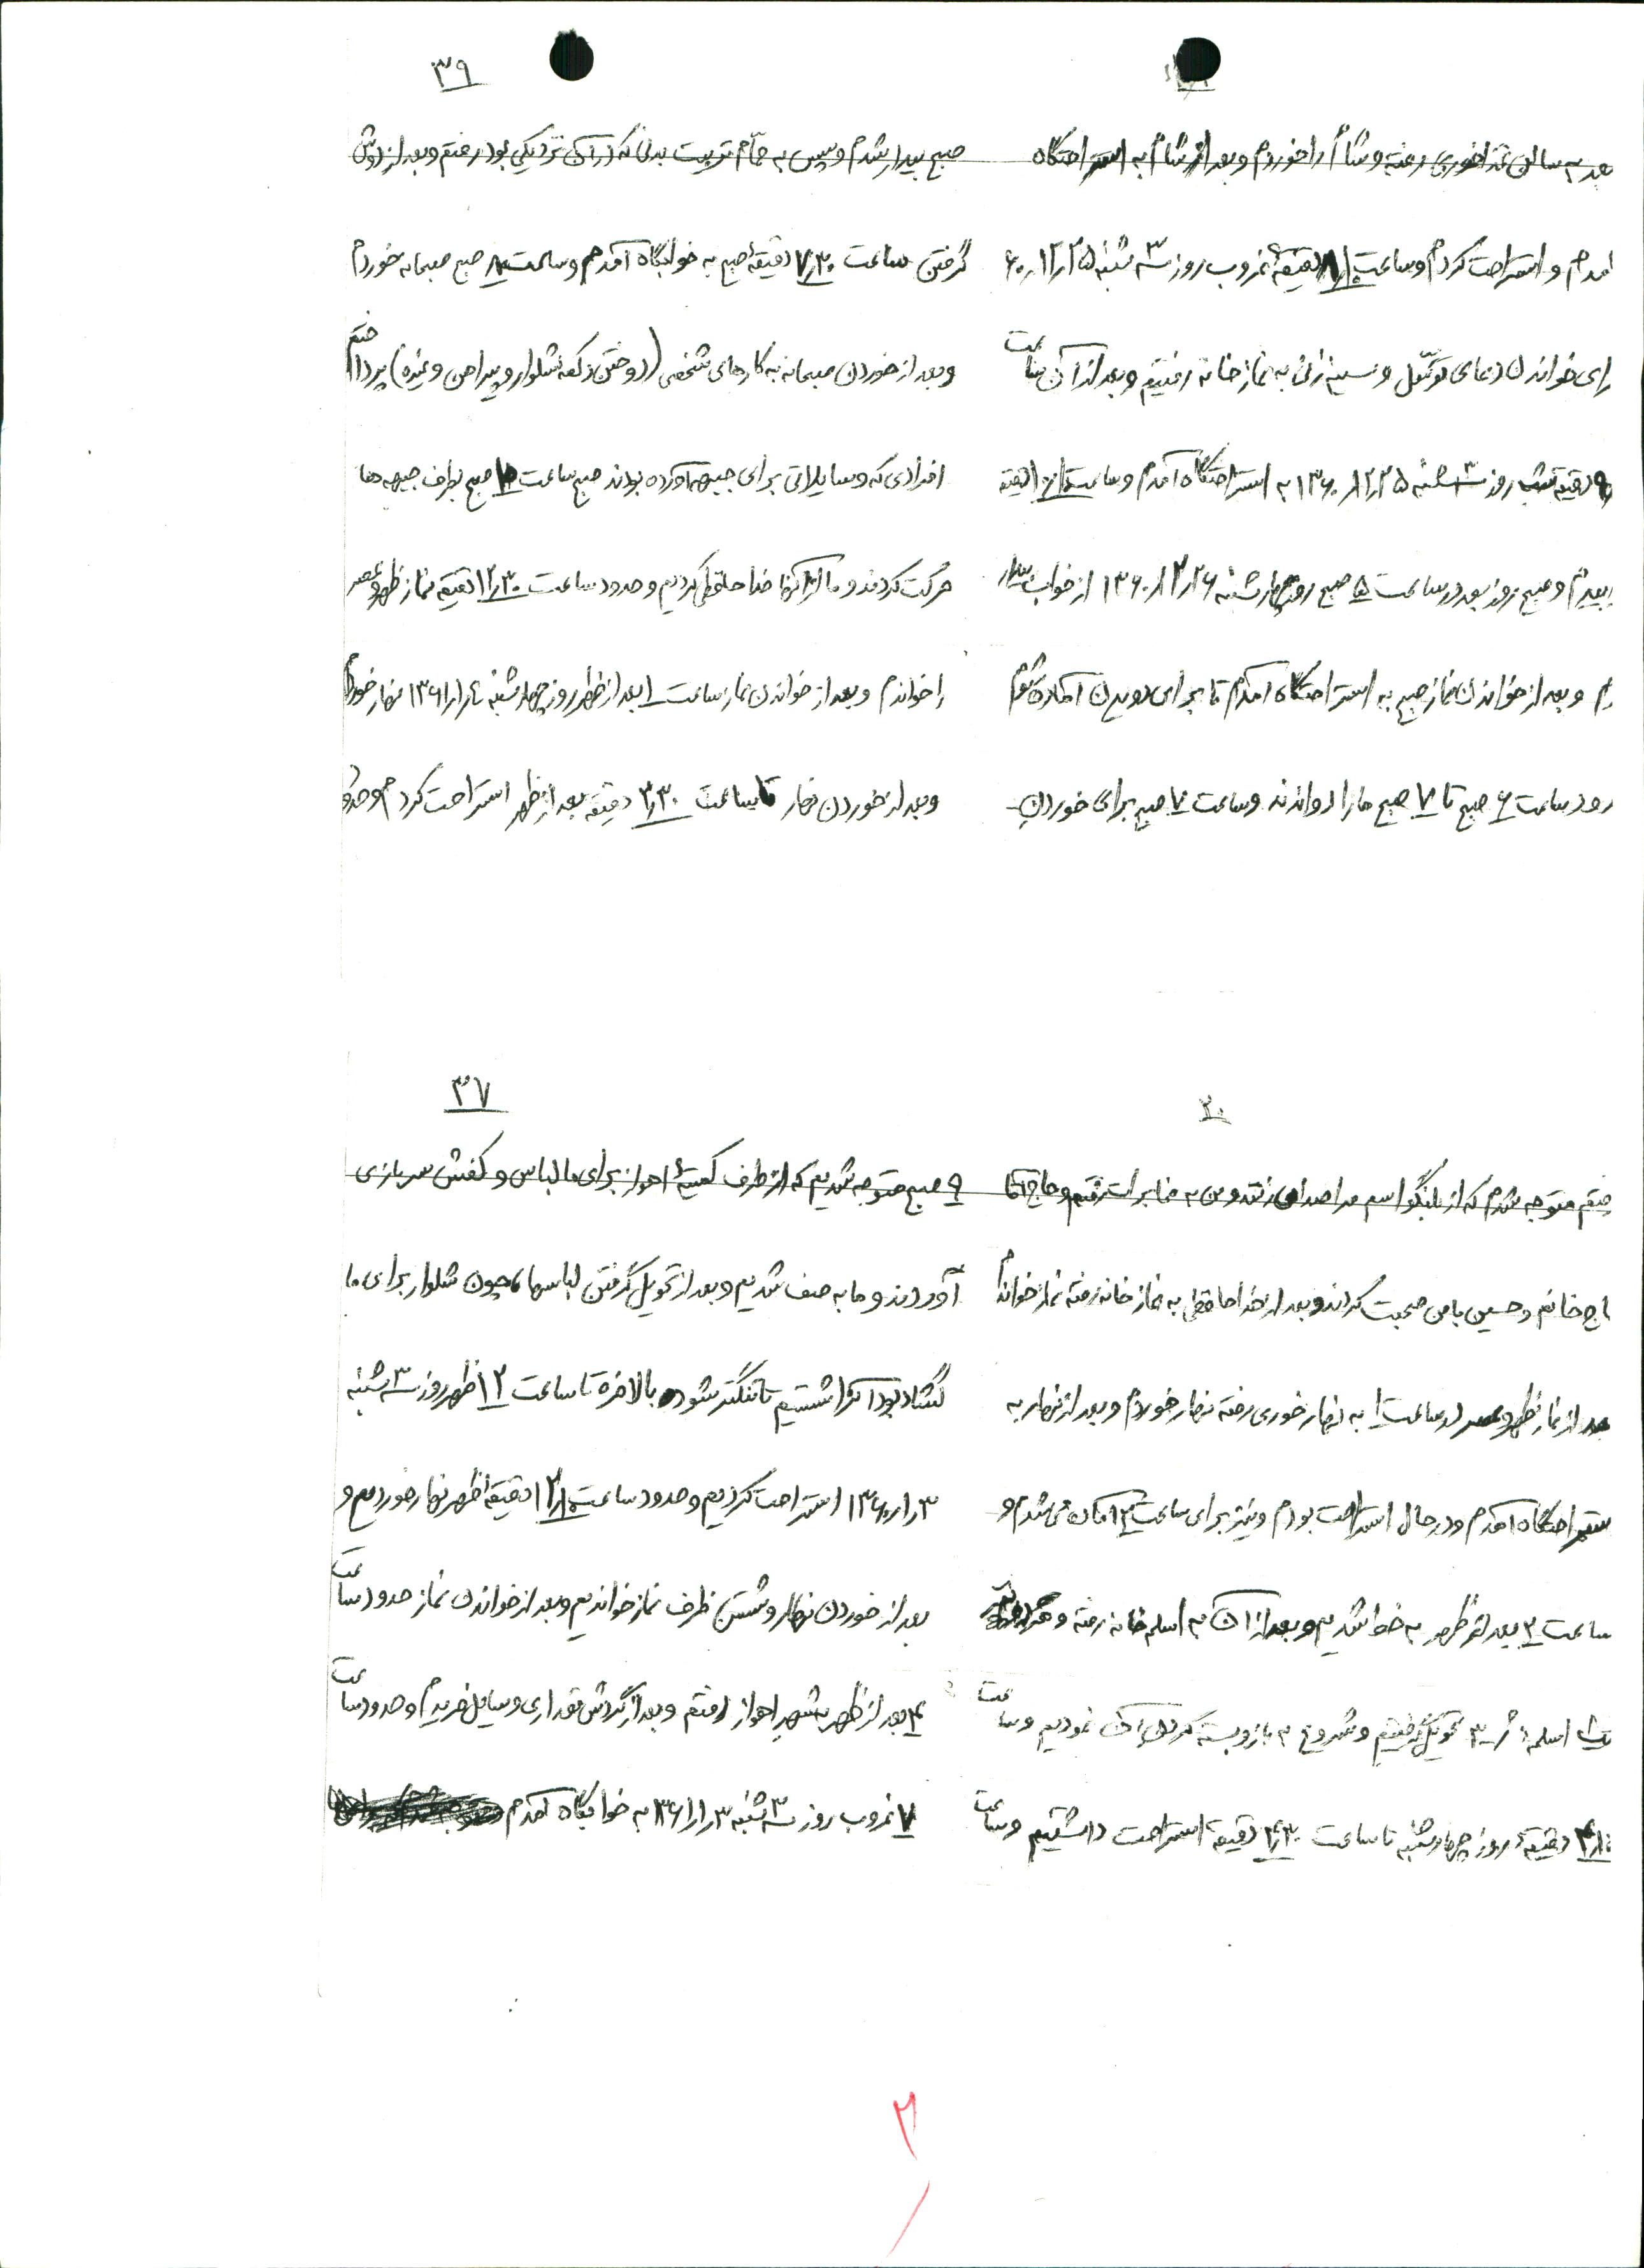 بعد به سالن غذاخوری رفته و شام را خوردم و بعد از شام به استراحتگاه
آمدم و استراحت کردم و ساعت دقیقهٔ غروب روز ۳ شنبه ۲۵ر۱۲ر۶۰
برای خواندن دعای توسّل و سینه زنی به نمازخانه رفتیم و بعد از آن ساعت
دقیقه شب روز ۳ شنبه ۲۵ر۱۲ر۱۳۶۰ به استراحتگاه آمدم و ساعت دقیقه
و صبح روز بعد در ساعت ۵ صبح روز چهارشنبه ۲۶ر۱۲ر۱۳۶۰ از خواب بیدار
و بعد از خواندن نماز صبح به استراحتگاه آمدم تا برای دویدن آماده شوم
ساعت ۶ صبح تا ۷ صبح ما را دواندند و ساعت ۷ صبح برای خوردن
۳۹
صبح بیدار شدم و سپس به حمّام تربیت بدنی که در آن نزدیکی بود رفتم و بعد از دوش
گرفتن ساعت ۷ر۳۰ دقیقهٔ صبح به خوابگاه آمدم و ساعت ۸ صبح صبحانه خوردم
و بعد از خوردن صبحانه به کارهای شخصی (دوختن دکمه شلوار و پیراهن و غیره) پرداختم
افرادی که وسایلاتی برای جبهه آورده بودند صبح ساعت ۱۰ صبح بطرف جبهه ها
حرکت کردند و ما از آنها خداحافظی کردیم و حدود ساعت ۱۲ر۳۰ دقیقه نماز ظهر و عصر
را خواندم و بعد از خواندن نماز ساعت ۱ بعد از ظهر روز چهارشنبه ۴ر۱ر۱۳۶۱ نهار خوردم
و بعد از خوردن نهار تا ساعت ۳ر۳۰ دقیقه بعد از ظهر استراحت کردم و حدود
۳۰
متوجه شدم که از بلندگو اسم مرا صدا می زنند و من به مخابرات رفتم و حاج آقا
حاج خانم و حسین با من صحبت کردند و بعد از خداحافظی به نمازخانه رفته نماز خواندم
بعد از نماز ظهر و عصر در ساعت ۱ به نهارخوری رفته نهار خوردم و بعد از نهار به
استراحتگاه آمدم و در حال استراحت بودم و نیز برای ساعت ۳ آماده می شدم و
ساعت ۳ بعد از ظهر به خط شدیم و بعد از آن به اسلحه خانه رفته و
اسلحه ژ-۳ تحویل گرفتیم و شروع به باز و بسته کردن آن نمودیم و ساعت
۴ر۱۰ دقیقهٔ روز چهارشنبه تا ساعت ۴ر۳۰ دقیقه استراحت داشتیم و ساعت
۳۷
۹ صبح متوجه شدیم که از طرف کمیتهٔ اهواز برای ما لباس و کفش سربازی
آوردند و ما به صف شدیم و بعد از تحویل گرفتن لباسها چون شلوار برای ما
گشاد بود آنرا شستیم تا تنگتر شود بالاخره تا ساعت ۱۲ ظهر روز ۳ شنبه
۳ر۱ر۱۳۶۰ استراحت کردیم و حدود ساعت ۱۲ر۱۰ دقیقهٔ ظهر نهار خوردیم و
بعد از خوردن نهار و شستن ظرف نماز خواندیم و بعد از خواندن نماز حدود ساعت
۴ بعد از ظهر به شهر اهواز رفتم و بعد از گردش مقداری وسایل خریدم و حدود ساعت
۷ غروب روز ۳ شنبه ۳ر۱ر۱۳۶۱ به خوابگاه آمدم
۳